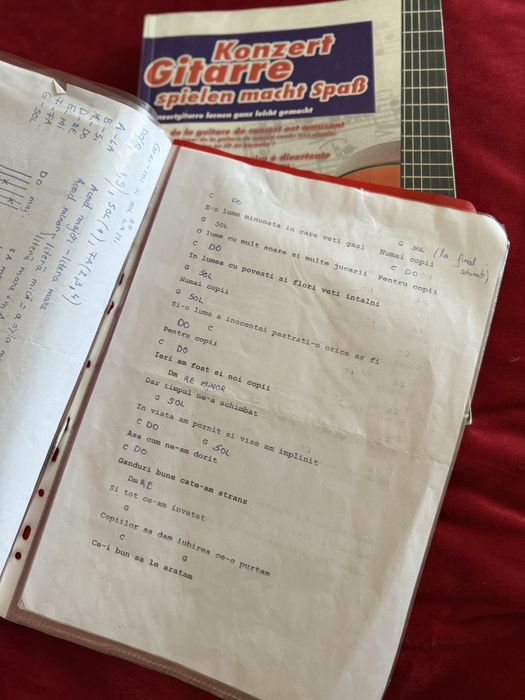 Konzert
Gitarre
spielen macht Spaß
Konzertgitarre lernen ganz leicht gemacht
de la guitare de concert est amusant
è divertente
A - LA
B - SI
DO
RE
E - MI
F - FA
G - SOL
SOL (4), FA (2,3,4)
Acord major literă mare
Acord minor literă mică
DO maj
C DO
E-o lume minunata in care veti gasi
G SOL G SOL (la final
O lume cu mult soare si multe jucarii Numai copii schimb)
C DO C DO
In lumea cu povesti si flori veti intalni Pentru copii
G SOL
Numai copii
G SOL
Si-o lume a inocentei pastrati-o orice ar fi
DO C
Pentru copii
C DO
Ieri am fost si noi copii
Dm RE MINOR
Dar timpul ne-a schimbat
G SOL
In viata am pornit si vise am implinit
C DO G SOL
Asa cum ne-am dorit
C DO
Ganduri bune cate-am strans
Dm RE
Si tot ce-am invatat
G
Copiilor sa dam iubirea ce-o purtam
C G
Ce-i bun sa le aratam